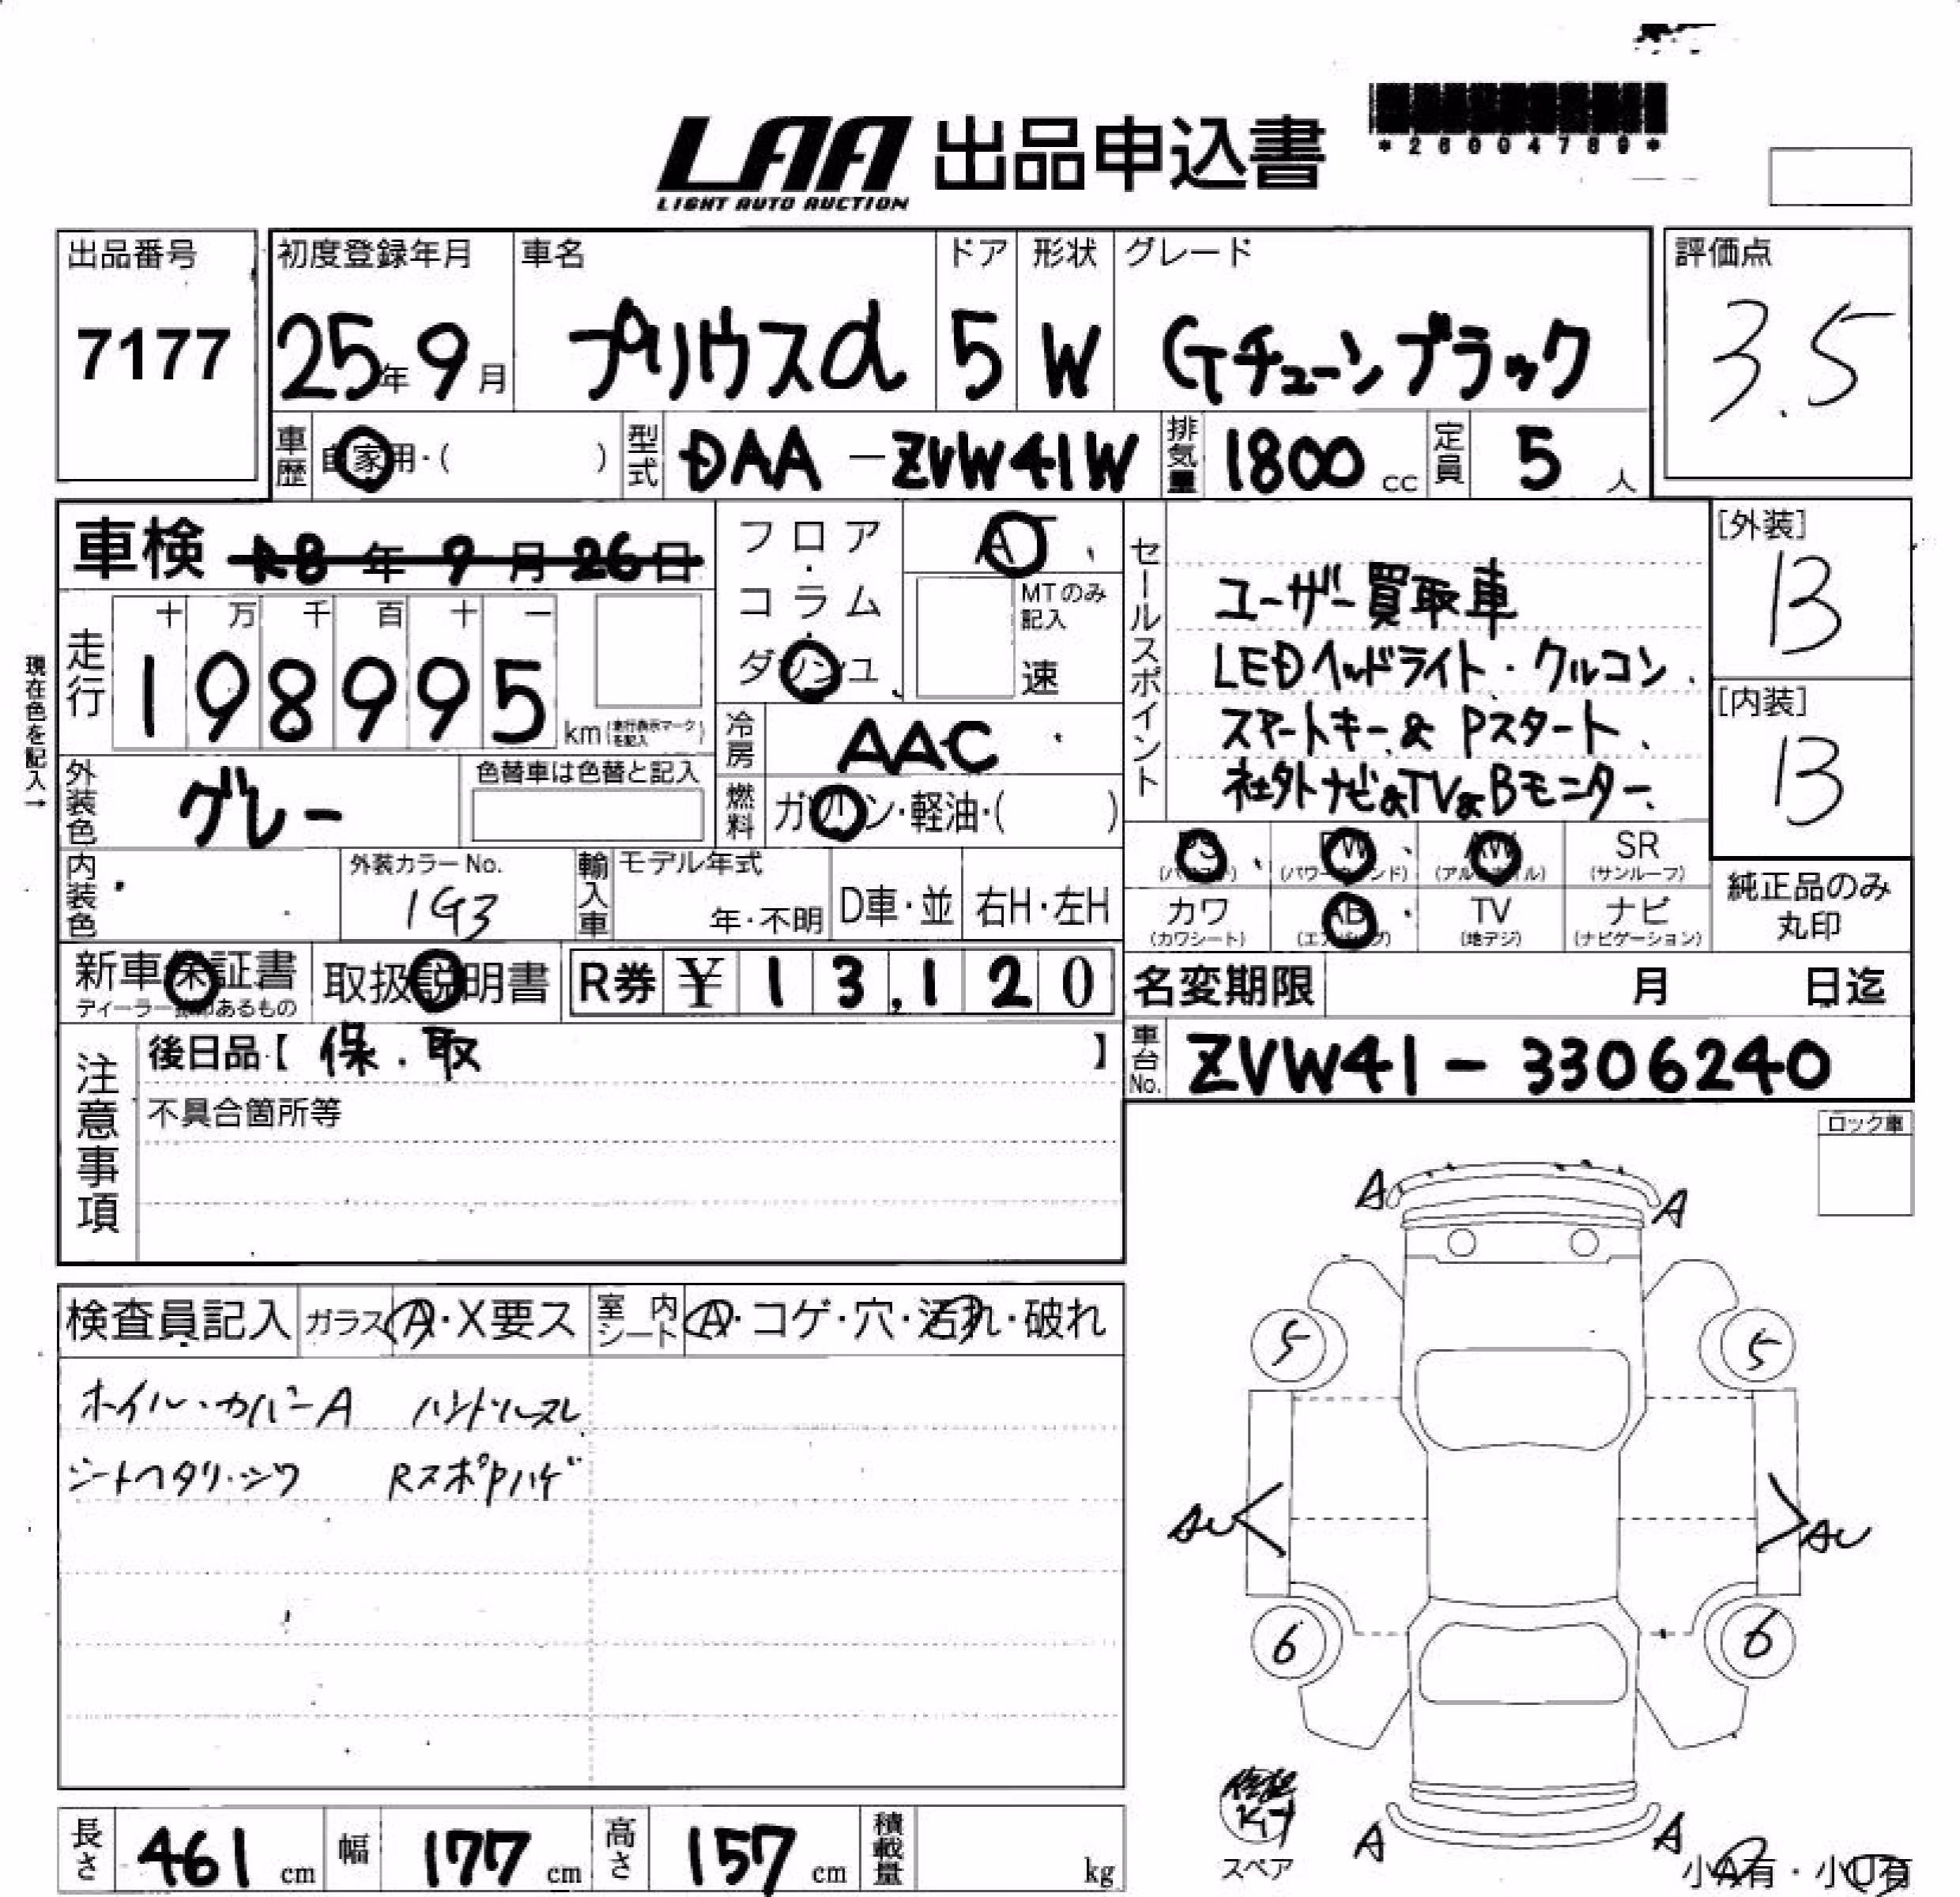 LAA 出品申込書
LIGHT AUTO AUCTION
*26004789*
出品番号
7177
初度登録年月
25年9月
車名
プリウスα
ドア
5
形状
W
グレード
Gチューンブラック
評価点
3.5
車歴 自家用・( )
型式 DAA-ZVW41W
排気量 1800 cc
定員 5 人
車検 R8年9月26日
フロア・コラム・ダッシュ
AT
MTのみ記入
速
セールスポイント
ユーザー買取車
LEDヘッドライト・クルコン
スマートキー&Pスタート
社外ナビ&TV&Bモニター
[外装]
B
[内装]
B
現在色を記入→
走行
十 万 千 百 十 一
198995 km (走行表示マークを記入)
冷房 AAC
外装色 グレー
色替車は色替と記入
燃料 ガソリン・軽油・( )
内装色
外装カラーNo.
1G3
輸入車 モデル年式
年・不明
D車・並
右H・左H
PS (パワステ)
PW (パワーウインド)
AW (アルミホイル)
SR (サンルーフ)
カワ (カワシート)
AB (エアバッグ)
TV (地デジ)
ナビ (ナビゲーション)
純正品のみ丸印
新車保証書
取扱説明書
R券 ¥13,120
名変期限 月 日迄
注意事項
後日品【 保.取 】
車台No. ZVW41-3306240
不具合箇所等
ロック車
A A
検査員記入
ガラス A・X要ス
室内シート A・コゲ・穴・汚れ・破れ
5 5
ホイル・カバーA ハンドルスレ
シートヘタリ・シワ RスポPハゲ
AU AU
6 6
スペア
A A
小A有・小U有
長さ 461 cm
幅 177 cm
高さ 157 cm
積載量 kg